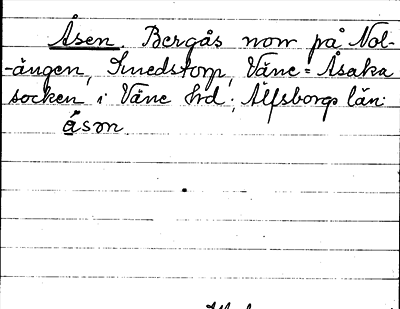 Åsen. Bergås norr på Nol-
-ängen, Smedstorp, Väne=Åsaka
socken i Väne hrd; Älfsborgs län.
åsɔn.